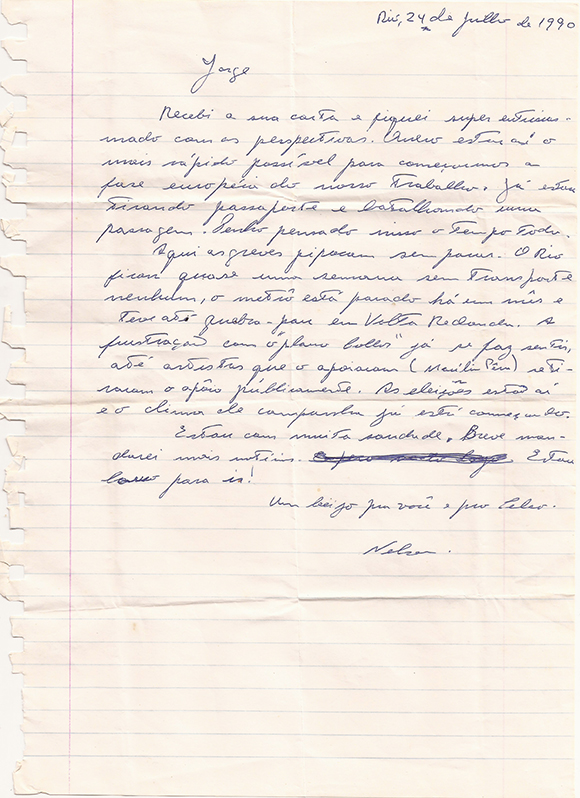 Rio, 24 de julho de 1990
Jorge
Recebi a sua carta e fiquei super entusias-
mado com as perspectivas. Quero estar aí o
mais rápido possível para começarmos a
fase européia do nosso trabalho. Já estou
tirando passaporte e batalhando uma
passagem. Tenho pensado nisso o tempo todo.
Aqui as greves pipocam sem parar. O Rio
ficou quase uma semana sem transporte
nenhum, o metrô está parado há um mês e
teve até quebra-pau em Volta Redonda. A
frustração com o plano Collor já se faz sentir,
até artistas que o apoiavam (Marília Pêra) reti-
raram o apôio públicamente. As eleições estão aí
e o clima de campanha já está começando.
Estou com muita saudade. Breve man-
darei mais notícias. Estou
louco para ir!
Um beijo pra você e pro
Nelson.